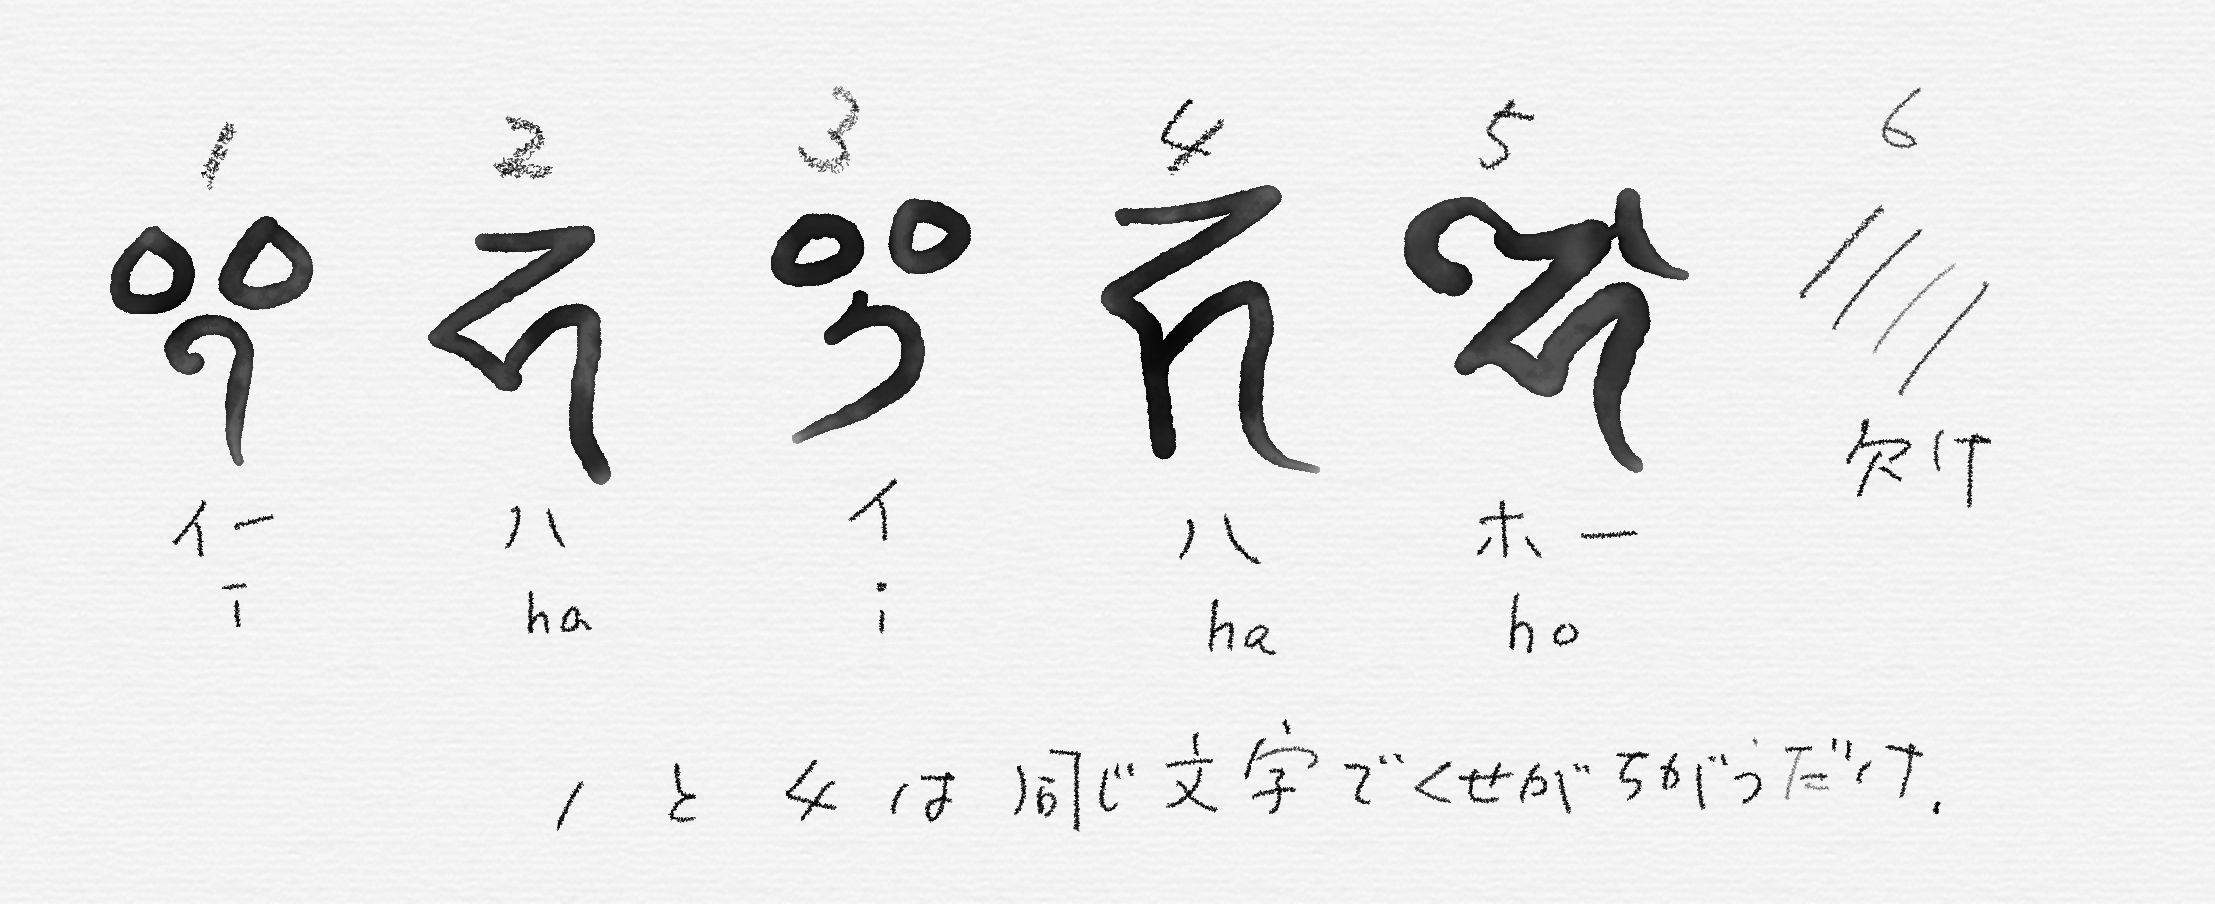 1 2 3 4 5 6
𑖂 𑖮 𑖂 𑖮 𑖮𑖺
イー ハ イ ハ ホー 欠け
ī ha i ha ho
1と4は同じ文字でくせがちがうだけ.